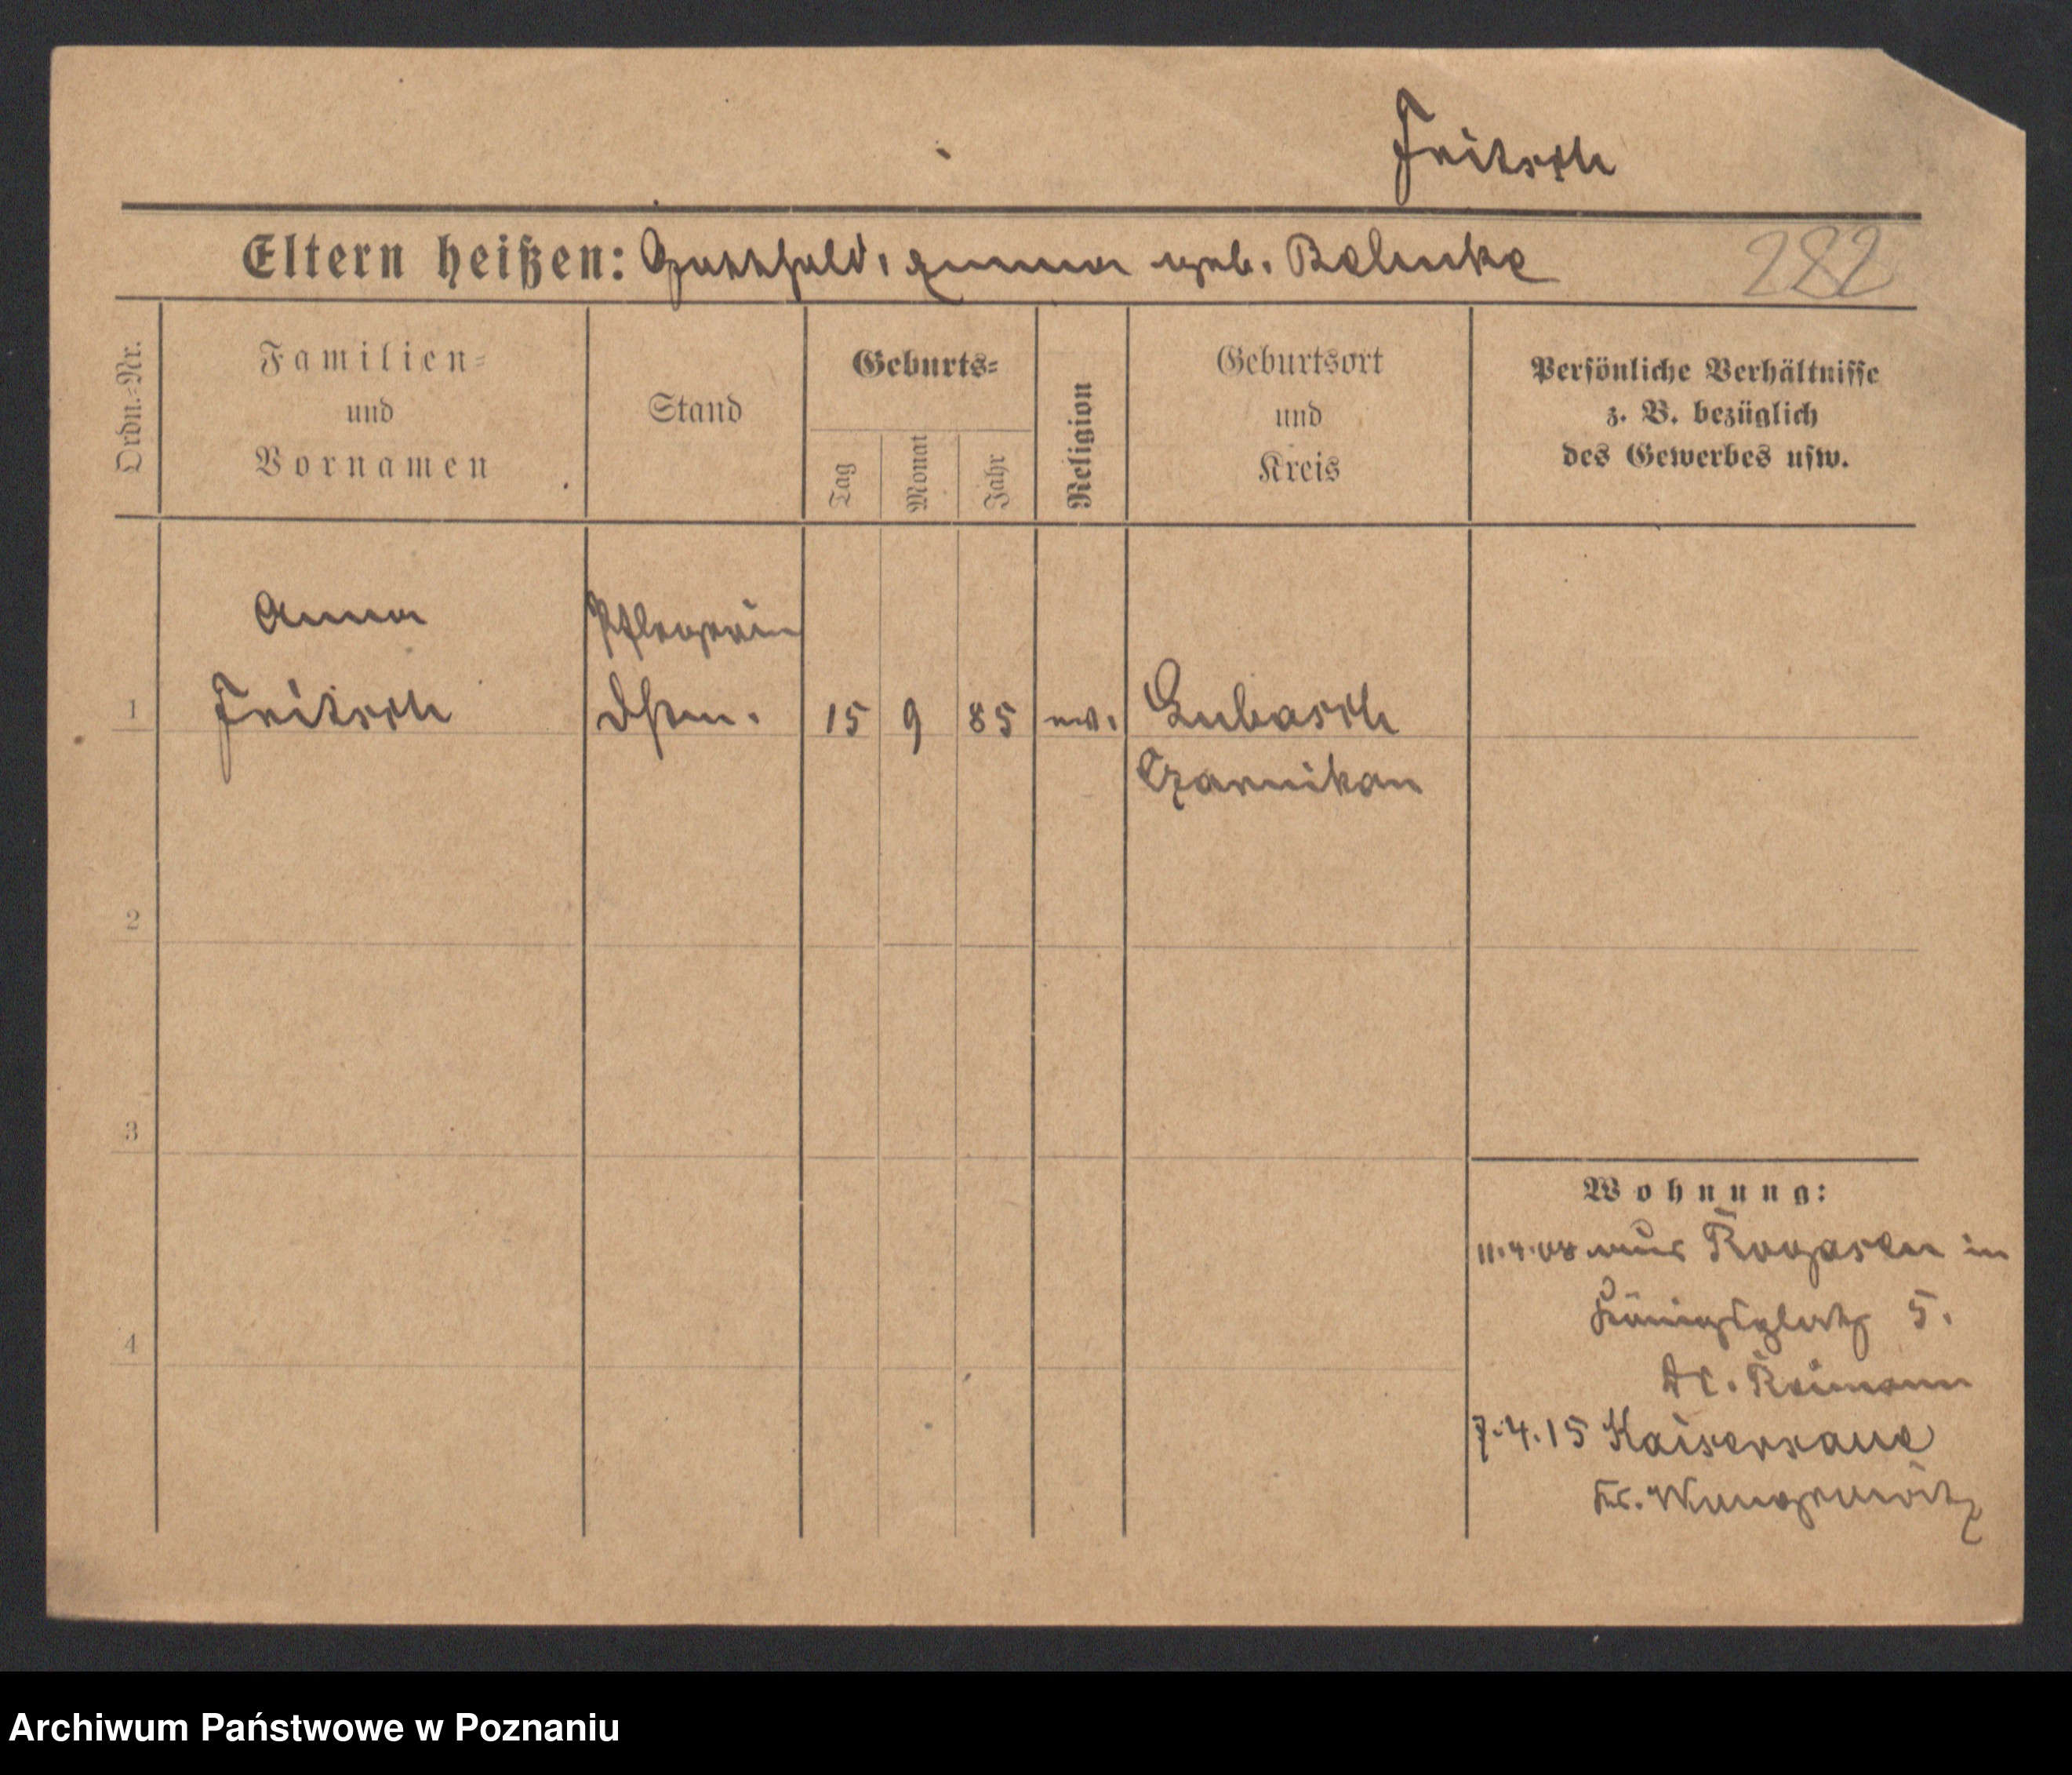 Fritsch
Eltern heißen: Gotthold, Emma geb. Behnke
282
Ordn.-Nr.
Familien-
und
Vornamen
Stand
Geburts-
Tag
Monat
Jahr
Religion
Geburtsort
und
Kreis
Persönliche Verhältnisse
z. B. bezüglich
des Gewerbes usw.
Anna
Pflegerin
1
Fritsch
15
9
85
ev.
Lubasch
Czarnikau
2
3
4
Wohnung:
11.4.08 aus Rogasen in
Königsplatz 5.
Reimann
7.4.15 Kaisersaue
Kr. Wongrowitz
Archiwum Państwowe w Poznaniu